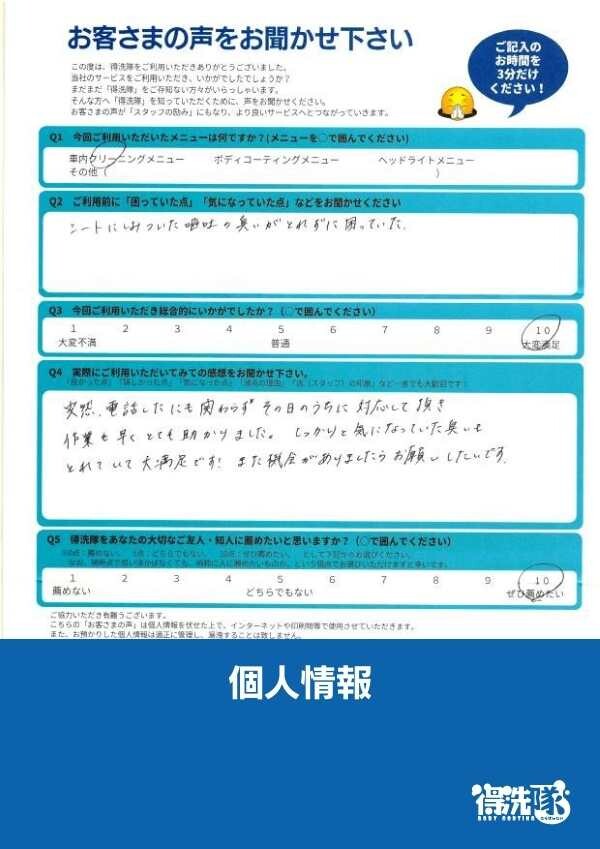 お客さまの声をお聞かせ下さい
ご記入の
お時間を
3分だけ
ください！
この度は、得洗隊をご利用いただきありがとうございました。
当社のサービスをご利用いただき、いかがでしたでしょうか？
まだまだ「得洗隊」をご存知ない方々がいらっしゃいます。
そんな方へ「得洗隊」を知っていただくために、声をお聞かせください。
お客さまの声が「スタッフの励み」にもなり、より良いサービスへとつながっていきます。
Q1 今回ご利用いただいたメニューは何ですか？(メニューを○で囲んでください)
車内クリーニングメニュー ボディコーティングメニュー ヘッドライトメニュー
その他（ ）
Q2 ご利用前に「困っていた点」「気になっていた点」などをお聞かせください
シートにしみついた嘔吐の臭いがとれずに困っていた。
Q3 今回ご利用いただき総合的にいかがでしたか？（○で囲んでください）
1 2 3 4 5 6 7 8 9 10
大変不満 普通 大変満足
Q4 実際にご利用いただいてみての感想をお聞かせ下さい。
「良かった点」「嬉しかった点」「気になった点」「満点の理由」「店（スタッフ）の印象」など一言でも大歓迎です！
突然、電話したにも関わらずその日のうちに対応して頂き
作業も早くとても助かりました。しっかりと気になっていた臭いも
とれていて大満足です！また機会がありましたらお願いしたいです。
Q5 得洗隊をあなたの大切なご友人・知人に薦めたいと思いますか？（○で囲んでください）
1 2 3 4 5 6 7 8 9 10
薦めない どちらでもない ぜひ薦めたい
ご協力いただき有難うございます。
こちらの「お客さまの声」は個人情報を伏せた上で、インターネットや印刷物等で使用させていただきます。
また、お預かりした個人情報は適正に管理し、漏洩することは致しません。
個人情報
得洗隊